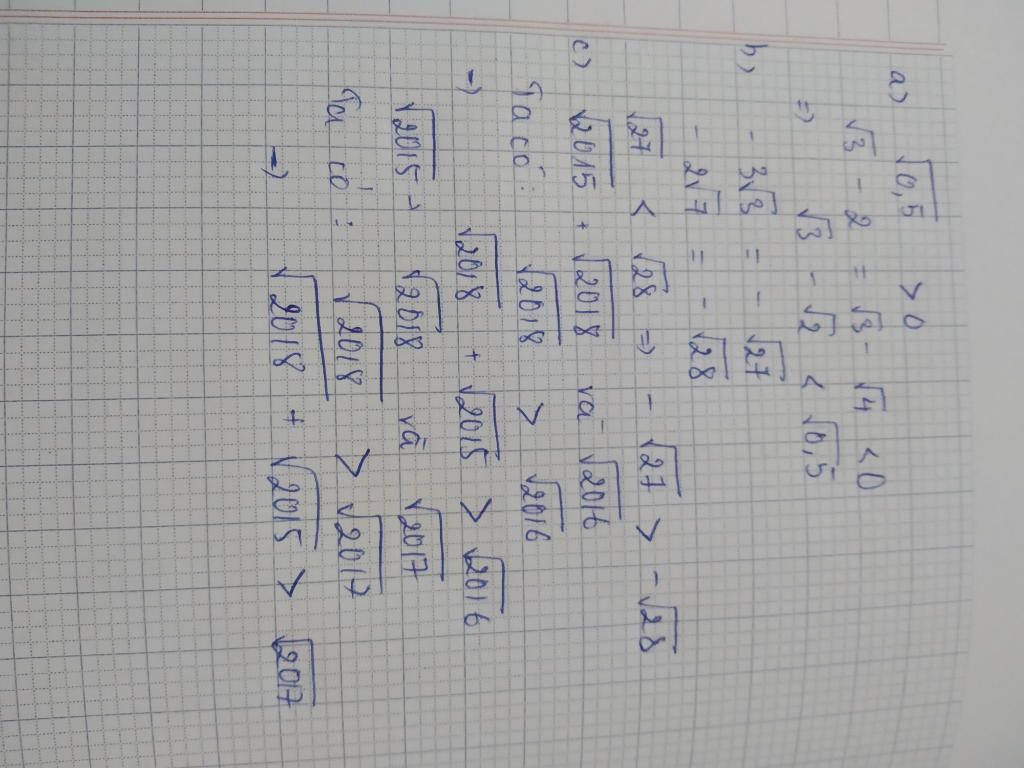 a) √0,5 > 0
√3 - 2 = √3 - √4 < 0
=> √3 - √2 < √0,5
b) - 3√3 = - √27
- 2√7 = - √28
√27 < √28 => - √27 > - √28
c) √2015 + √2018 và √2016
Ta có: √2018 > √2016
=> √2018 + √2015 > √2016
√2015 + √2018 và √2017
Ta có: √2018 > √2017
=> √2018 + √2015 > √2017